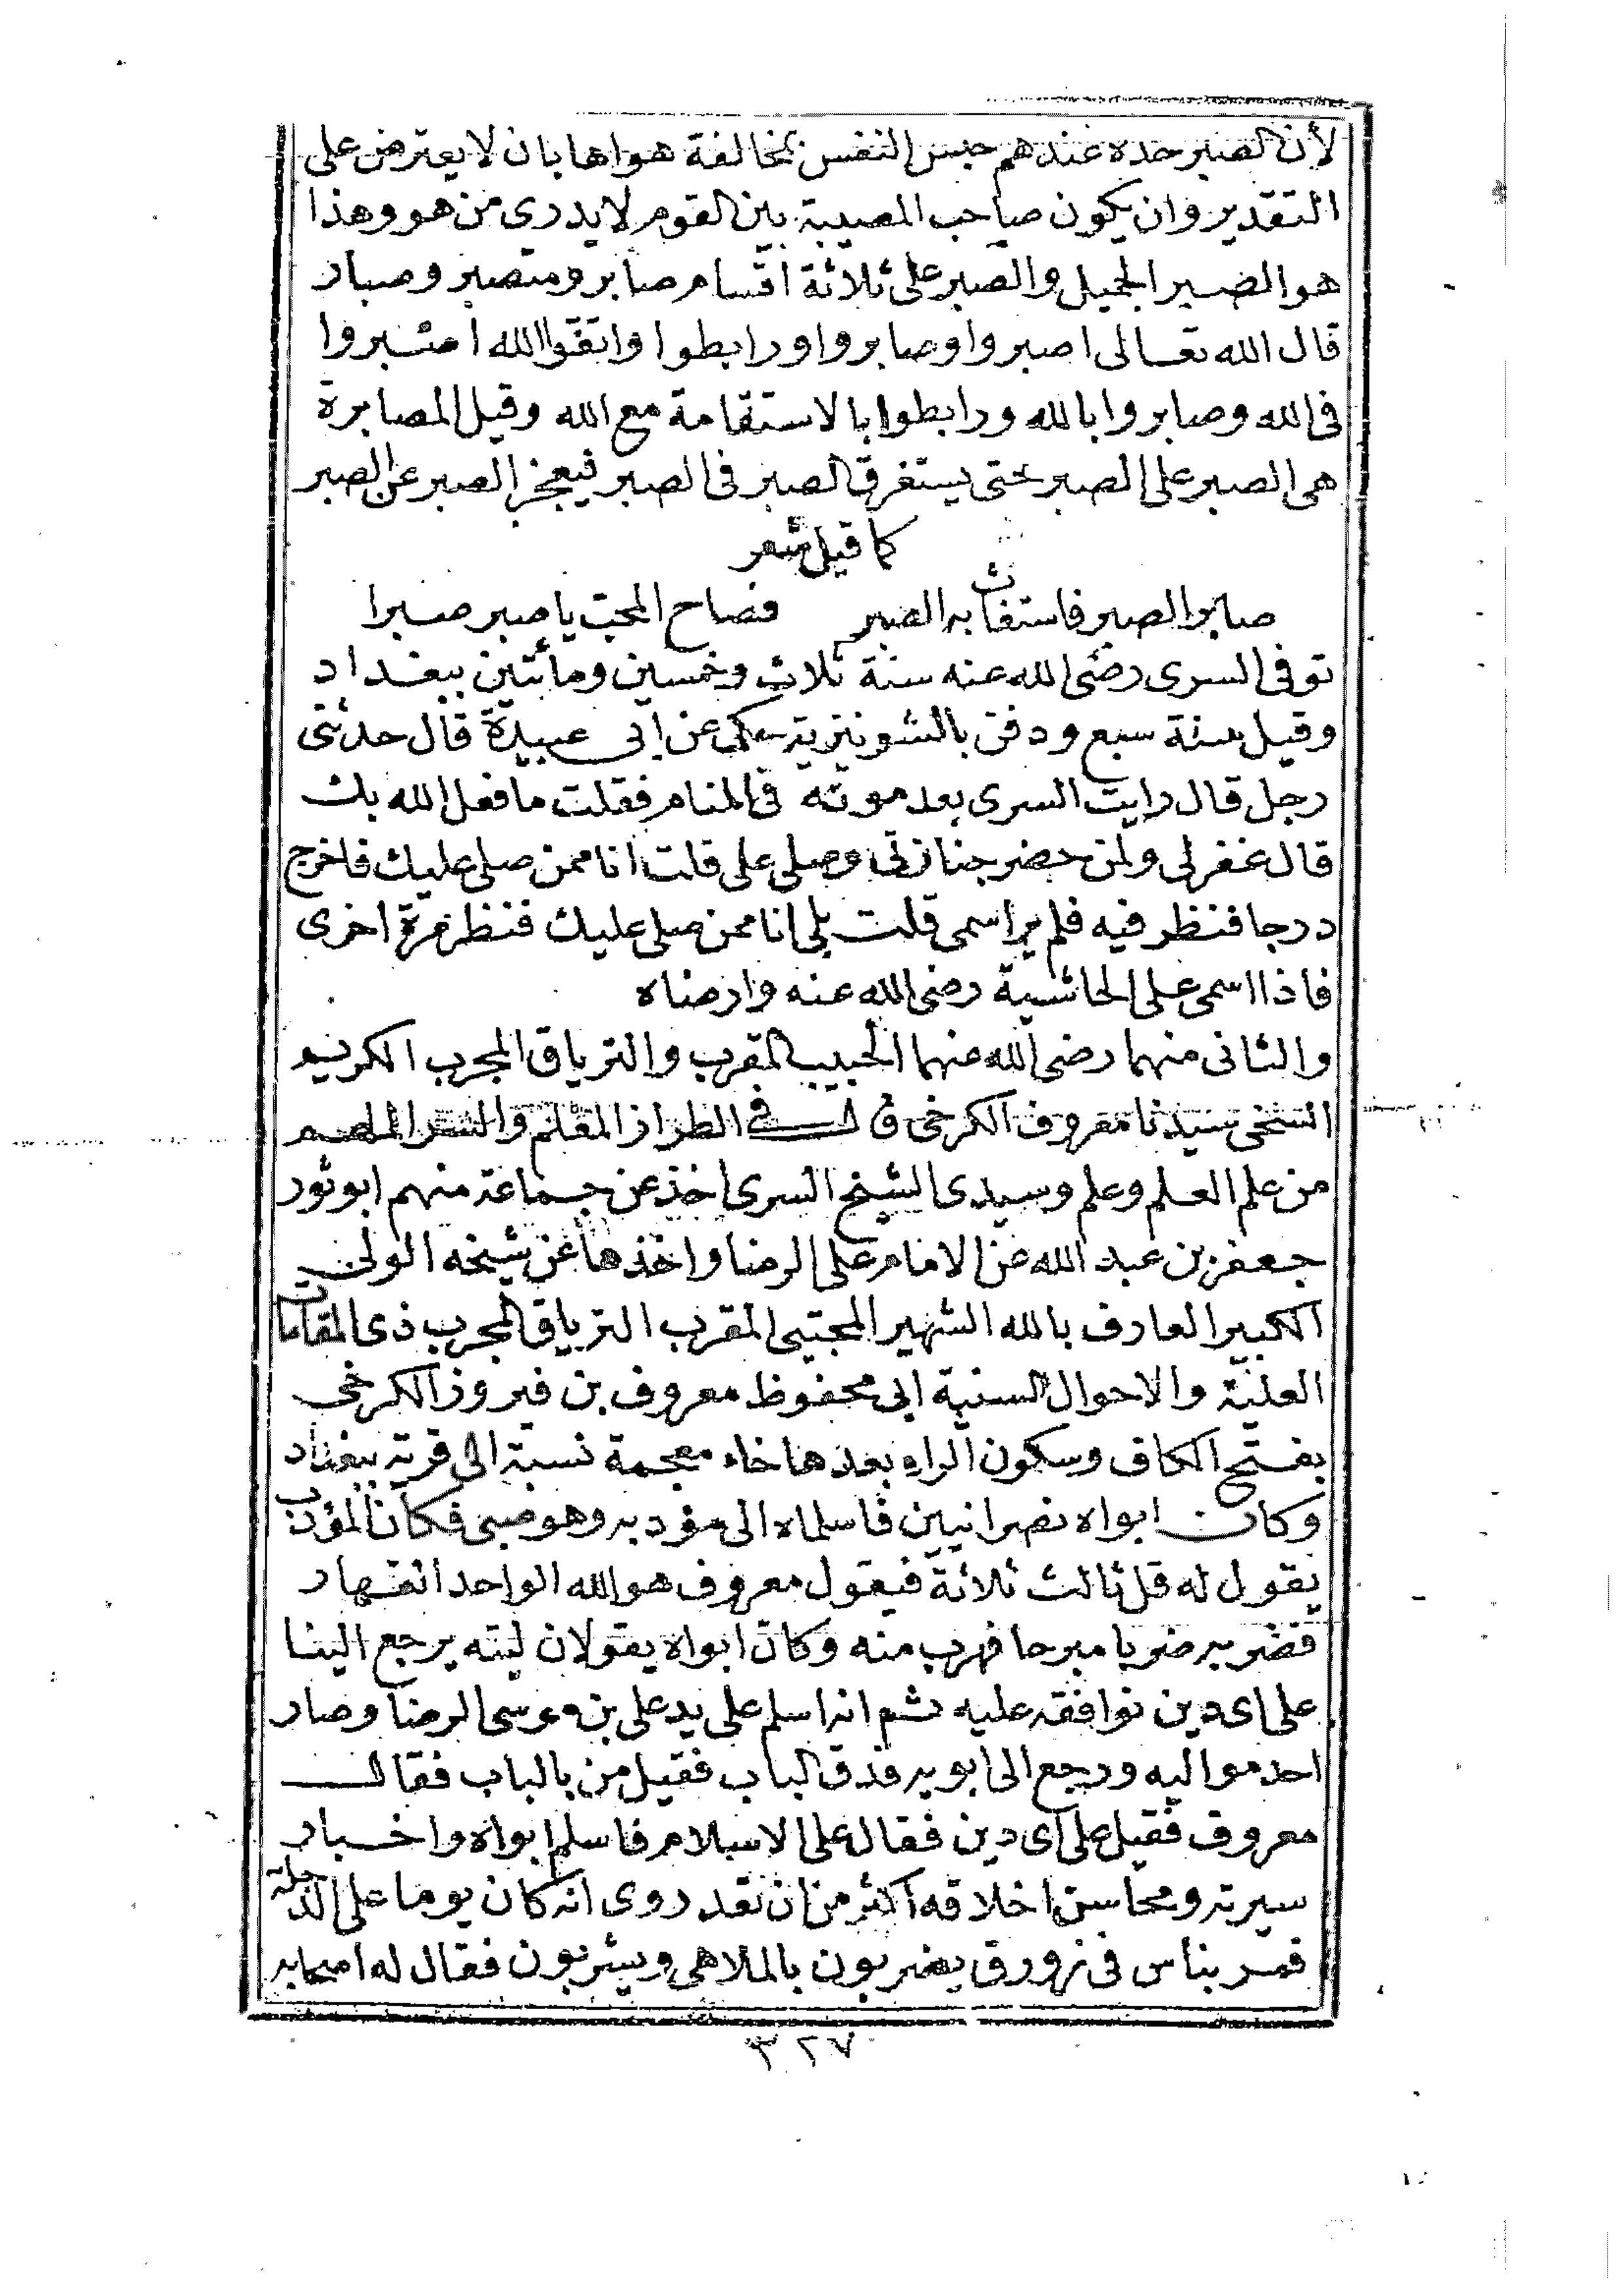 لأن الصبر حده عندهم حبس النفس بمخالفة هواها بان لا يعترض على
التقدير وان يكون صاحب المصيبة بين القوم لا يدرى من هو وهذا
هو الصبر الجميل والصبر على ثلاثة اقسام صابر ومتصبر وصبار
قال الله تعالى اصبروا وصابروا ورابطوا واتقوا الله اصبروا
فى الله وصابروا بالله ورابطوا بالاستقامة مع الله وقيل المصابرة
هى الصبر على الصبر حتى يستغرق الصبر فى الصبر فيعجز الصبر عن الصبر
كما قيل شعر
صابر الصبر فاستغاث به الصبر فصاح المحب يا صبر صبرا
توفى السرى رضى الله عنه سنة ثلاث وخمسين ومأتين ببغداد
وقيل سنة سبع ودفن بالشونيزية حكى عن ابى عبيدة قال حدثنى
رجل قال رايت السرى بعد موته فى المنام فقلت ما فعل الله بك
قال غفر لى ولمن حضر جنازتى وصلى على قلت انا ممن صلى عليك فاخرج
درجا فنظر فيه فلم ير اسمى قلت بلى انا ممن صلى عليك فنظر مرة اخرى
فاذا اسمى على الحاشية رضى الله عنه وارضاه
والثانى منهما رضى الله عنهما الحبيب المقرب والترياق المجرب الكريم
السخى سيدنا معروف الكرخى قال فى الطراز المعلم والسر
من علم العلم وعلم وسيدى الشيخ السرى اخذ عن جماعة منهم ابو ثور
جعفر بن عبد الله عن الامام على الرضا واخذها عن شيخه الولى
الكبير العارف بالله الشهير المجتبى المقرب الترياق المجرب ذى المقامات
العلية والاحوال السنية ابى محفوظ معروف بن فيروز الكرخى
بفتح الكاف وسكون الراء بعدها خاء معجمة نسبة الى قرية ببغداد
وكان ابواه نصرانيين فاسلماه الى مؤدبه وهو صبى فكان المؤدب
يقول له قل ثالث ثلاثة فيقول معروف هو الله الواحد القهار
فضربه ضربا مبرحا فهرب منه وكان ابواه يقولان ليته يرجع الينا
على اى دين نوافقه عليه ثم انه اسلم على يد على بن موسى الرضا وصار
احد مواليه ورجع الى ابويه فدق الباب فقيل من بالباب فقال
معروف فقيل على اى دين فقال على الاسلام فاسلم ابواه واخبار
سيرته ومحاسن اخلاقه اكثر من ان تعد روى انه كان يوما على الدجلة
فمر بناس فى زورق يضربون بالملاهى ويشربون فقال له اصحابه
٣٢٧